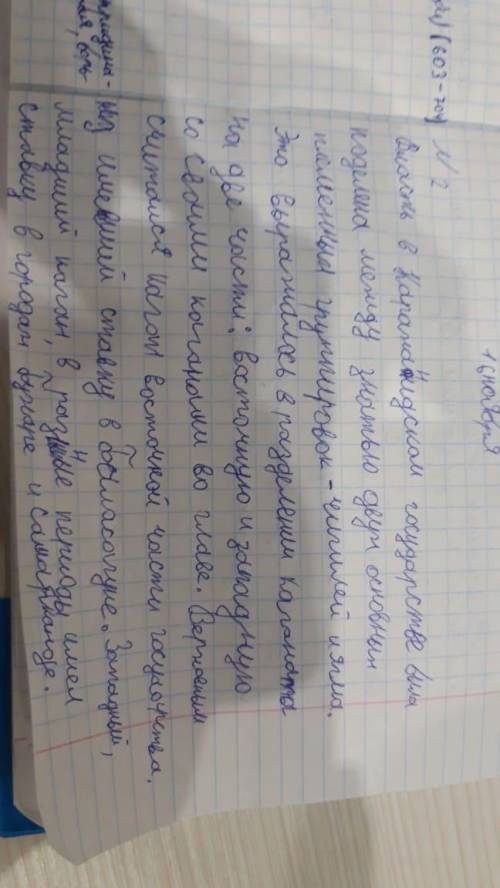 16 ноября
(603-704)
№2
Власть в Караханидском государстве была
поделена между знатью двух основных
племенных группировок - чигилей и ягма.
Это выражалось в разделении каганата
на две части: восточную и западную
со своими каганами во главе. Верховным
считался каган восточной части государства,
имевший ставку в Баласагуне. Западный,
младший каган, в разные периоды имел
ставку в городах Бухаре и Самарканде.